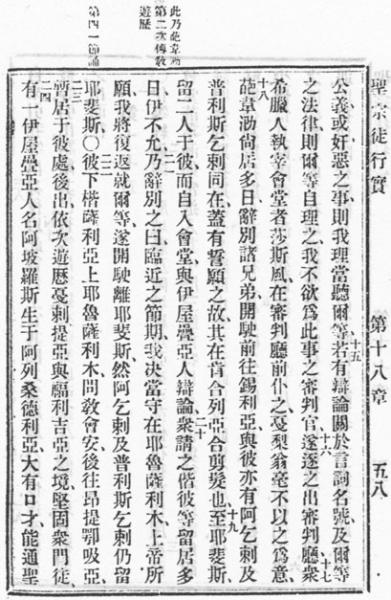 聖宗徒行實 第十八章 五八
公義或奸惡之事則我理當聽爾等十五若有辯論關於言詞名號及爾等
之法律則爾等自理之我不欲爲此事之審判官十六遂逐之出審判廳十七衆
希臘人執宰會堂者莎斯風在審判廳前仆之戞梨翁毫不以之爲意
十八葩韋泐尙居多日辭別諸兄弟開駛前往錫利亞與彼亦有阿乞剌及
普利斯乞剌同在蓋有誓願之故其在肯合列亞合剪髮也十九至耶斐斯
留二人于彼而自入會堂與伊屋疊亞人辯論二十衆請之偕彼等留居多
日伊不允二一乃辭別之曰臨近之節期我決當守在耶魯薩利木上帝所
願我將復返就爾等二二遂開駛離耶斐斯然阿乞剌及普利斯乞剌仍留
耶斐斯〇彼下楷薩利亞上耶魯薩利木問敎會安後往昂提鄂吸亞
二三暫居于彼處後出依次遊歷戞剌提亞與福利吉亞之境堅固衆門徒
二四有一伊屋疊亞人名阿坡羅斯生于阿列桑德利亞大有口才能通聖
此乃葩韋泐
第二次傳敎
遊歷
第四一節誦